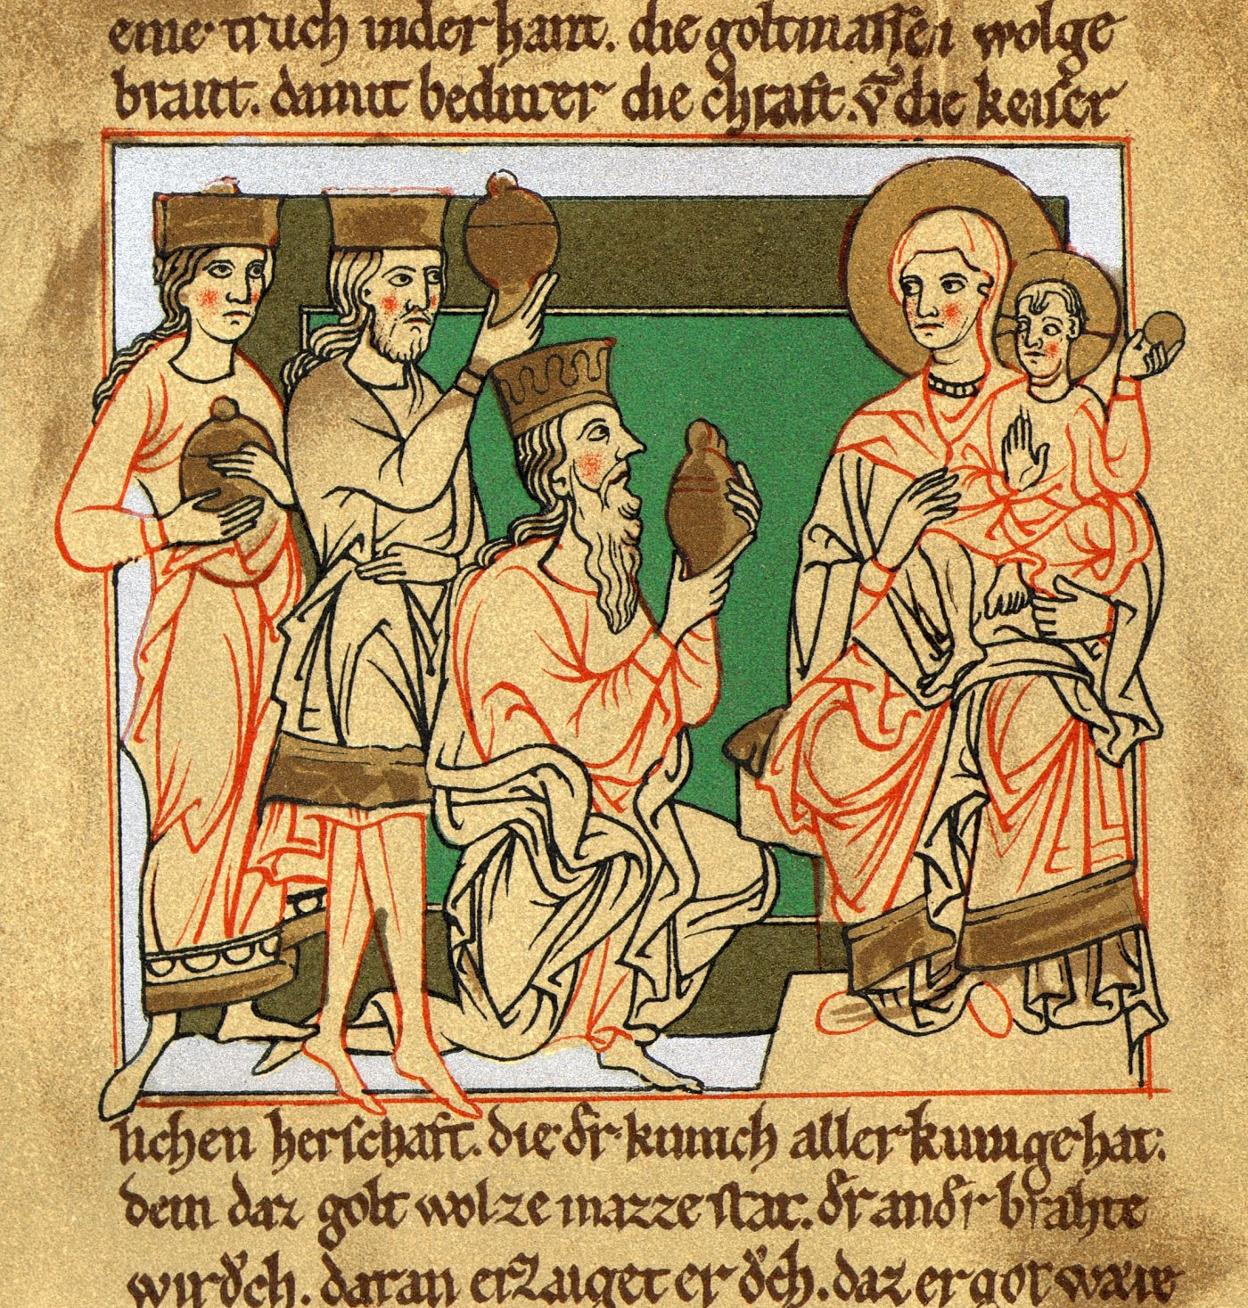 eine truch inder hant. die goltmassen wolge
brant. damit bediwter die chraft. vͦ die keiser
lichen herschaft. die dͤr kunich aller kunige hat:
dem daz golt wol ze mazze stat. dͤr andͤr brahte
wirͦͧch. daran erzaiget er ͦͧch. daz er got wære